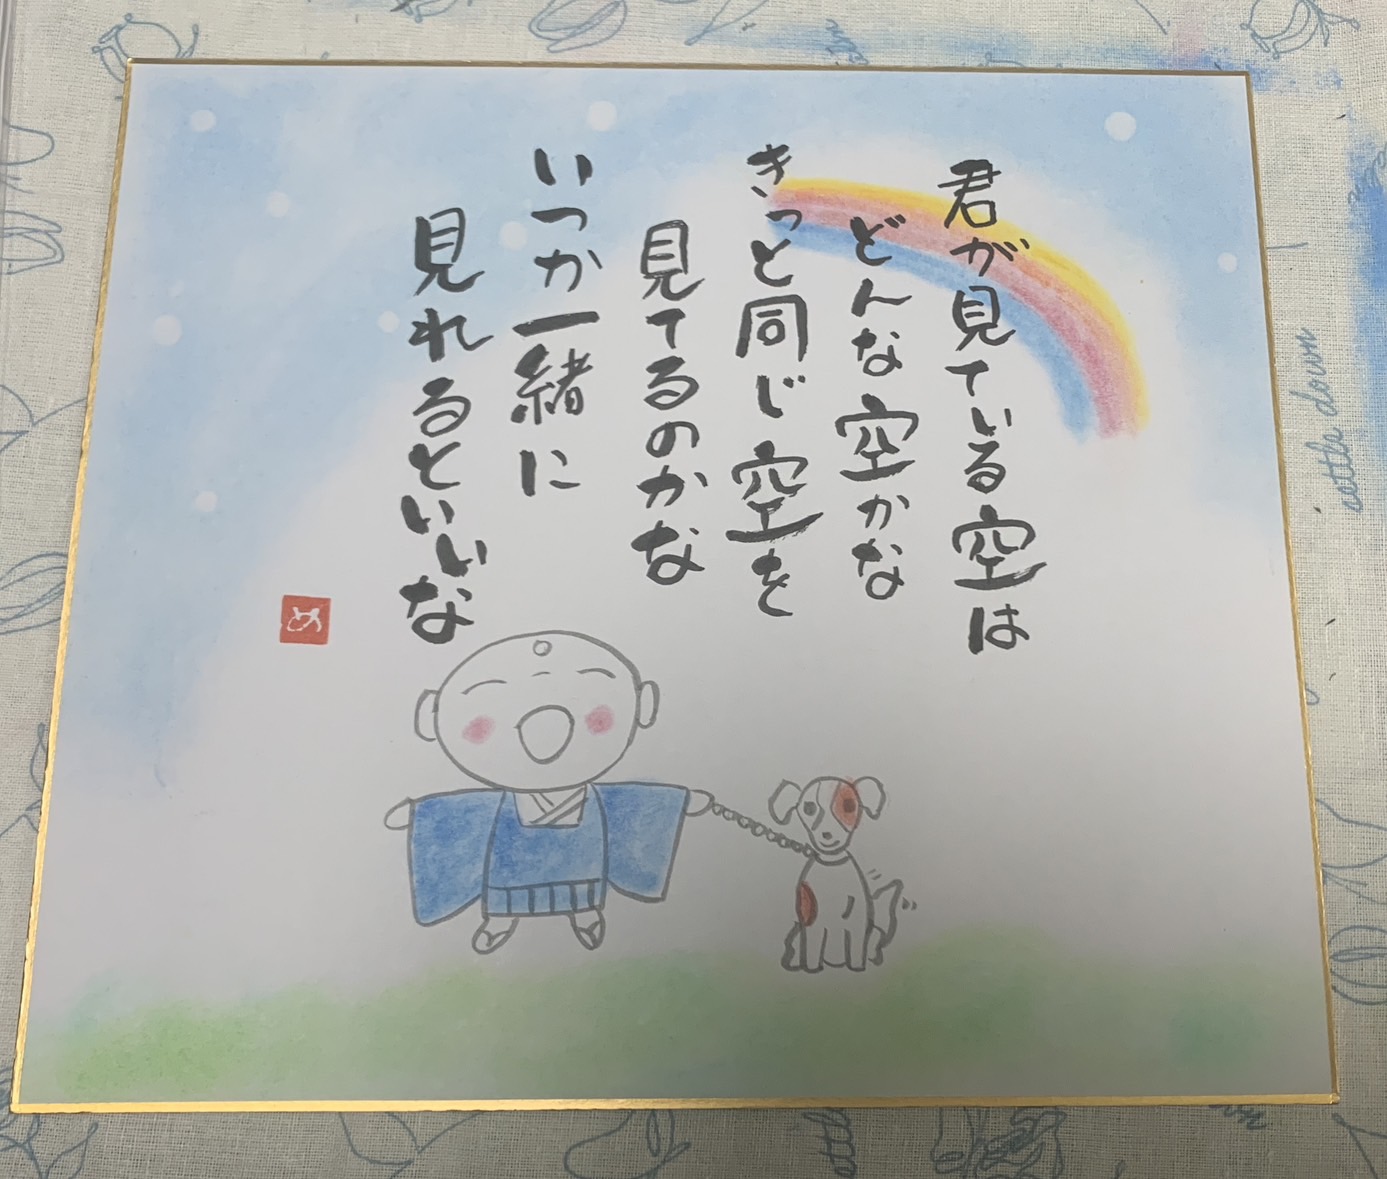 君が見ている空は
どんな空かな
きっと同じ空を
見てるのかな
いつか一緒に
見れるといいな
め
cattle down